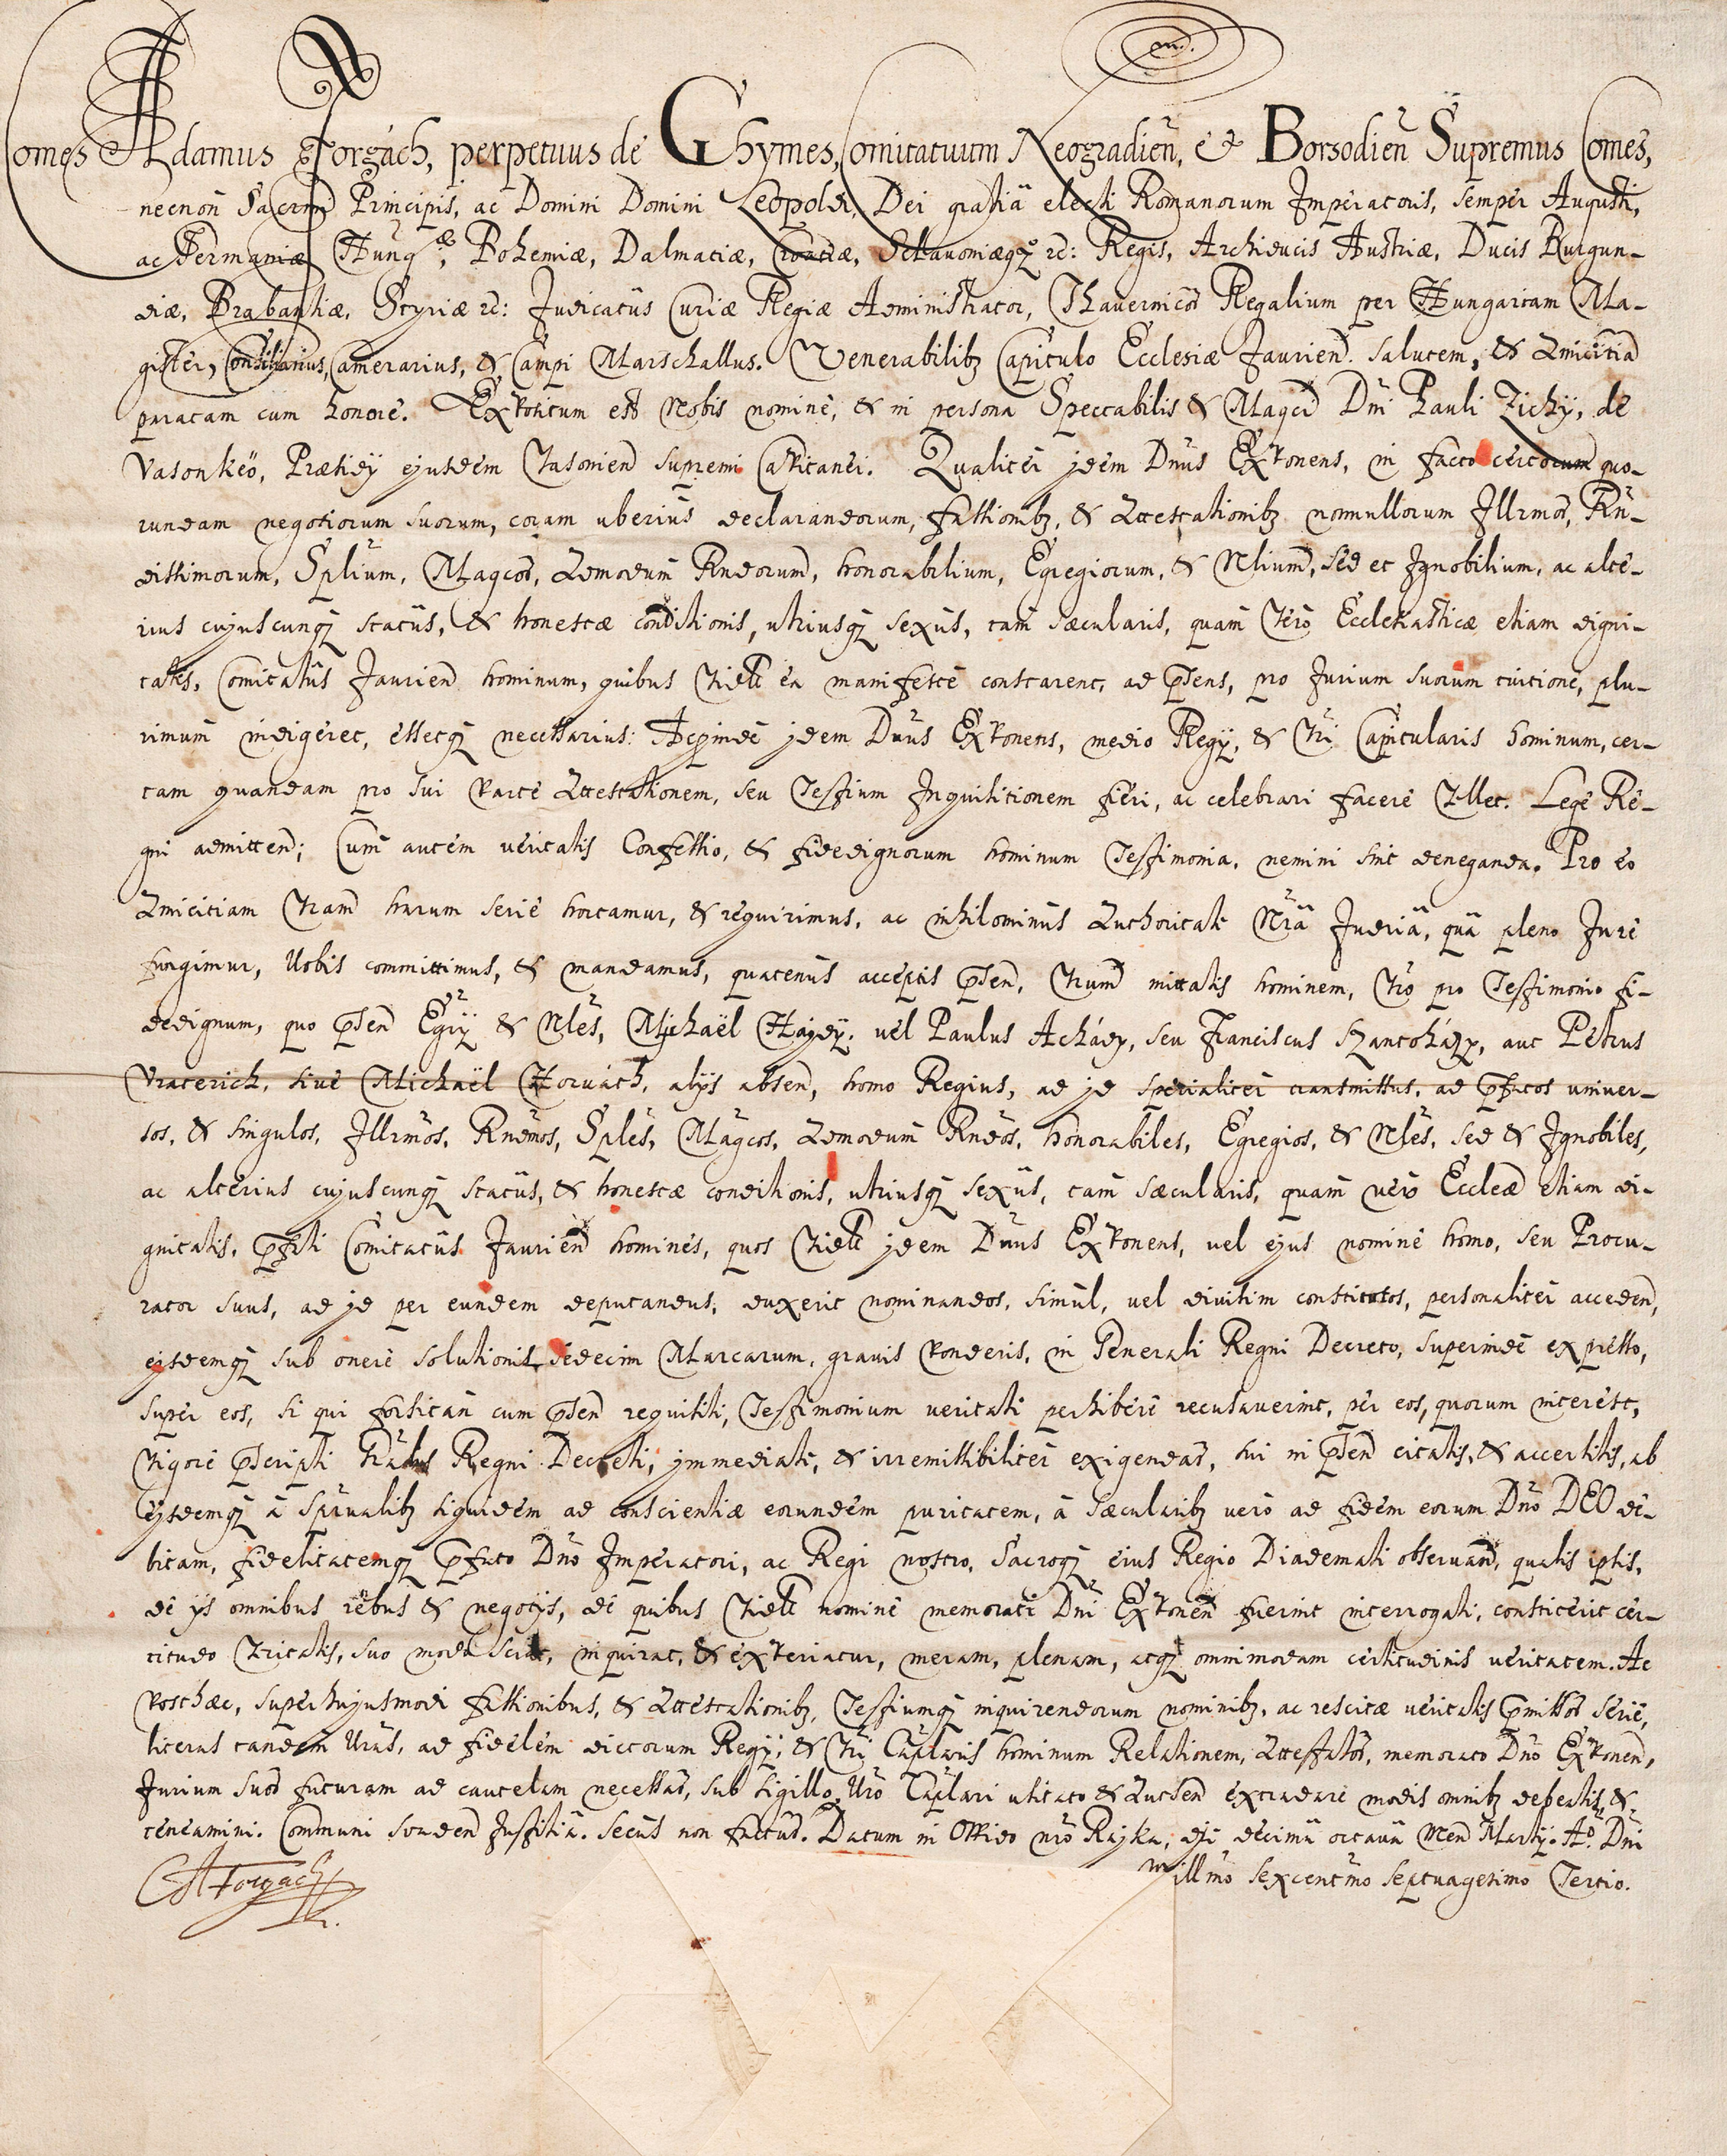 Comes Adamus Forgách, perpetuus de Ghymes, Comitatuum Neogradien, & Borsodien Supremus Comes,
m.
necnon Sacrmi Principis, ac Domini Domini Leopoldi, Dei gratiâ electi Romanorum Imperatoris, semper Augusti,
ac Germaniæ Hungæ, Bohemiæ, Dalmatiæ, Croatiæ, Sclavoniæqz &c: Regis, Archiducis Austriæ, Ducis Burgun-
diæ, Brabantiæ, Styriæ &c: Judicatûs Curiæ Regiæ Administrator, Thavernicor Regalium per Hungariam Ma-
gister, Consiliarius, Camerarius, & Campi Marschallus. Venerabilibz Capitulo Ecclesiæ Jaurien. salutem, & Amicitiam
paratam cum honore. Expositum est Nobis nomine, & in persona Spectabilis & Magci Dni Pauli Zichÿ, de
Vasonkeö, Præsidÿ ejusdem Vasonien supremi Capitanei. Qualiter jdem Dnus Exponens, in facto certorum quo-
rundam negotiorum suorum, coram uberius declarandorum, fassionibz, & Attestationibz nonnullorum Illrmor, Rn-
dissimorum, Splium, Magcor, Admodum Rndorum, honorabilium, Egregiorum, & Nlium, sed et Ignobilium, ac alte-
rius cujuscunqz statûs, & honestæ conditionis, utriusqz sexûs, tam sæcularis, quam vero Ecclesiasticæ etiam digni-
tatis, Comitatûs Jaurien hominum, quibus vidlt ea manifeste constarent, ad psens, pro Jurium suorum tuitione, plu-
rimum indigeret, essetqz necessarius: Acproinde jdem Dnus Exponens, medio Regÿ, & Vri Capitularis hominum, cer-
tam quandam pro sui parte Attestationem, seu Testium Inquisitionem fieri, ac celebrari facere vellet. Lege Re-
gni admitten; Cum autem veritatis Confessio, & fidedignorum hominum Testimonia, nemini sint deneganda. Pro eo
Amicitiam Vram harum serie hortamur, & requirimus, ac nihilominus Authoritate Nrâ Judriâ, quâ pleno Jure
fungimur, Vobis committimus, & mandamus, quatenus acceptis psen, Vrum mittatis hominem, Vro pro Testimonio fi-
dedignum, quo psen Egrÿ & Nles, Michaël Hajdÿ, vel Paulus Acháḋy, seu Franciscus Szantoházy, aut Petrus
Vraterich, sive Michaël Horváth, alÿs absen, homo Regius, ad jd specialiter transmissus, ad pfatos univer-
sos, & singulos, Illrmos, Rndmos, Sples, Magcos, Admodum Rndos, honorabiles, Egregios, & Nles, sed & Ignobiles,
ac alterius cujuscunqz statûs, & honestæ conditionis, utriusqz sexûs, tam sæcularis, quam vero Eccleæ etiam di-
gnitatis, pfati Comitatûs Jaurien homines, quos vidlt jdem Dnus Exponens, vel ejus nomine homo, seu Procu-
rator suus, ad jd per eundem deputandus, duxerit nominandos, simul, vel divisim constitutos, personaliter acceden,
ejsdemqz sub onere solutionis sedecim Marcarum, gravis ponderis, in Generali Regni Decreto, superinde expresso,
super eos, si qui forsitan cum psen requisiti, Testimonium veritati perhibere recusaverint, per eos, quorum interest,
vigore pscripti Gralis Regni Decreti, jmmediate, & irremissibiliter exigendar, sui in psen citatis, & accersitis, ab
ejsdemqz à Spirualibz siquidem ad conscientiæ eorundem puritatem, à sæcularibz vero ad fidem eorum Dno DEO de-
bitam, fidelitatemqz pfato Dno Imperatori, ac Regi nostro, sacroqz eius Regio Diademati observan, qualis ipsis,
de ÿs omnibus rebus & negotÿs, de quibus vidlt nomine memorati Dni Exponen fuerint interrogati, constiterit cer-
titudo veritatis, suo modo sciat, inquirat, & experiatur, meram, plenam, atqz omnimodam certitudinis veritatem. Ac
posthæc, super hujusmodi fassionibus, & Attestationibz, Testiumqz inquirendorum nominibz, ac rescitæ veritatis pmissor serie,
literas tandem Vras, ad fidelem dictorum Regÿ, & Vri Caplaris hominum Relationem, Attestator, memorato Dno Exponen,
Jurium suor futuram ad cautelam necessar, sub sigillo Vro Caplari usitato & Authen extradare modis omnibz debeatis, &
teneamini. Communi suaden Justitiâ. Secus non factur. Datum in Oppido nro Rajka, die decima octava Mens Martÿ. Ao. Dni
millmo sexcentmo septuagesimo Tertio.
CAForgach